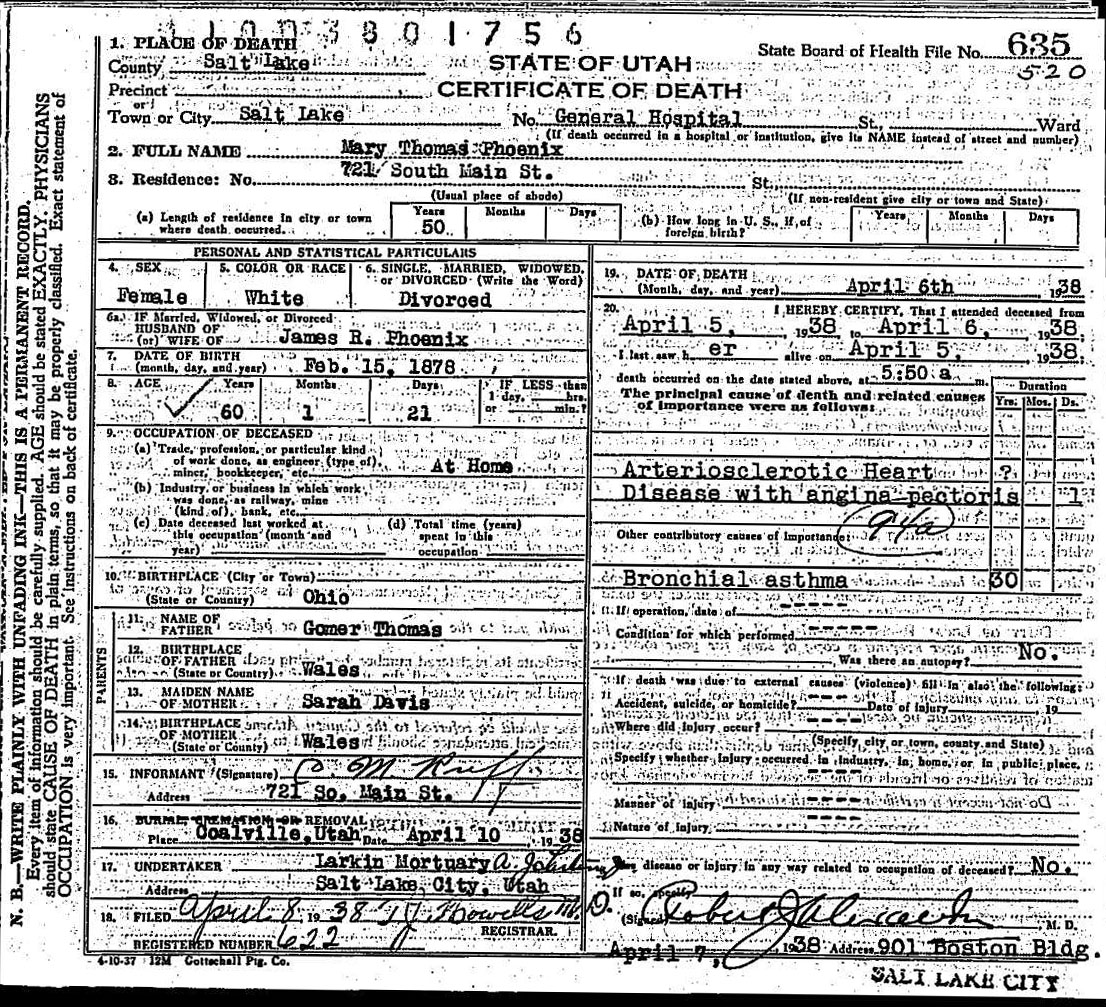 1100 3801756
1. PLACE OF DEATH
County Salt Lake
STATE OF UTAH
State Board of Health File No. 635
520
Precinct
CERTIFICATE OF DEATH
or
Town or City Salt Lake No. General Hospital St., Ward
(If death occurred in a hospital or institution, give its NAME instead of street and number)
2. FULL NAME Mary Thomas Phoenix
3. Residence: No. 721 South Main St. St.
(Usual place of abode) (If non-resident give city or town and State)
(a) Length of residence in city or town where death occurred. Years 50 Months Days
(b) How long in U. S., if of foreign birth? Years Months Days
PERSONAL AND STATISTICAL PARTICULARS
4. SEX Female
5. COLOR OR RACE White
6. SINGLE, MARRIED, WIDOWED, or DIVORCED (Write the Word) Divorced
6a. IF Married, Widowed, or Divorced
HUSBAND OF
(or) WIFE OF James R. Phoenix
7. DATE OF BIRTH
(month, day, and year) Feb. 15, 1878
8. AGE Years 60 Months 1 Days 21 IF LESS than 1 day, hrs. or min.?
9. OCCUPATION OF DECEASED
(a) Trade, profession, or particular kind
of work done, as engineer (type of),
miner, bookkeeper, etc. At Home
(b) Industry or business in which work
was done, as railway, mine
(kind of), bank, etc.
(c) Date deceased last worked at this occupation (month and year)
(d) Total time (years) spent in this occupation
10. BIRTHPLACE (City or Town)
(State or Country) Ohio
PARENTS
11. NAME OF FATHER Gomer Thomas
12. BIRTHPLACE OF FATHER
(State or Country) Wales
13. MAIDEN NAME OF MOTHER Sarah Davis
14. BIRTHPLACE OF MOTHER
(State or Country) Wales
15. INFORMANT (Signature)
Address 721 So. Main St.
16. BURIAL CREMATION OR REMOVAL
Place Coalville, Utah Date April 10 1938
17. UNDERTAKER Larkin Mortuary
Address Salt Lake City, Utah
18. FILED April 8, 1938 T J Howells M. D.
REGISTRAR.
REGISTERED NUMBER 622
4-10-37 12M Gottschall Ptg. Co.
19. DATE OF DEATH
(Month, day, and year) April 6th 1938
20. I HEREBY CERTIFY, That I attended deceased from
April 5, 1938 to April 6, 1938.
I last saw her alive on April 5, 1938.
death occurred on the date stated above, at 5:50 a m.
The principal cause of death and related causes
of importance were as follows:
Duration
Yrs. Mos. Ds.
Arteriosclerotic Heart ?
Disease with angina pectoris 1
94a
Other contributory causes of importance:
Bronchial asthma 30
If operation, date of -----
Condition for which performed -----
Was there an autopsy? No.
If death was due to external causes (violence) fill in also the following:
Accident, suicide, or homicide? --- Date of injury 19
Where did injury occur? ----
(Specify city or town, county and State)
Specify whether injury occurred in industry, in home, or in public place.
----
Manner of injury ----
Nature of injury ----
Was disease or injury in any way related to occupation of deceased? No.
If so, specify
(Signed) Robert J. M. D.
April 7, 1938 Address 901 Boston Bldg.
SALT LAKE CITY
N. B.—WRITE PLAINLY WITH UNFADING INK—THIS IS A PERMANENT RECORD.
Every item of information should be carefully supplied. AGE should be stated EXACTLY. PHYSICIANS
should state CAUSE OF DEATH in plain terms, so that it may be properly classified. Exact statement of
OCCUPATION is very important. See instructions on back of certificate.